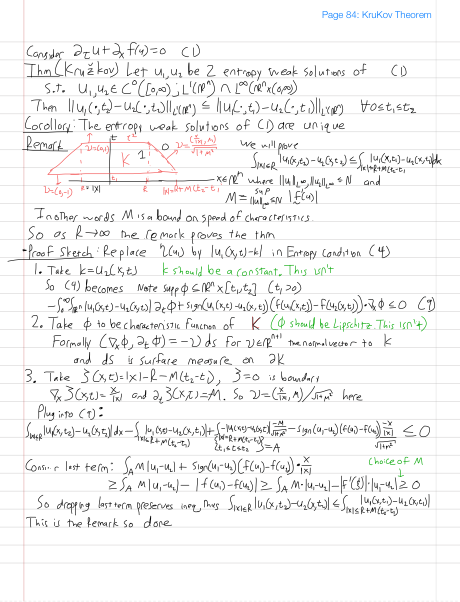 Page 84: KruKov Theorem
Consider ∂_t u + ∂_x f(u) = 0 (1)
Thm (Kružkov) Let u_1, u_2 be 2 entropy weak solutions of (1)
s.t. u_1, u_2 ∈ C^0([0,∞); L^1(ℝ^n)) ∩ L^∞(ℝ^n×(0,∞))
Then ||u_1(·,t_2)-u_2(·,t_2)||_{L^1(ℝ^n)} ≤ ||u_1(·,t_1)-u_2(·,t_1)||_{L^1(ℝ^n)} ∀ 0≤t_1≤t_2
Corollory: The entropy weak solutions of (1) are unique
Remark
we will prove
∫_{|x|≤R} |u_1(x,t_2)-u_2(x,t_2)| ≤ ∫_{|x|≤R+M(t_2-t_1)} |u_1(x,t_1)-u_2(x,t_1)| dx
x∈ℝ^n where ||u_1||_∞, ||u_2||_∞ ≤ N and
M = sup_{||u||_∞≤N} |f'(u)|
ν=(0,1)
t
t_2
K
ν=(x/|x|,M)/√(1+M²)
ν=(0,-1)
R=|x|
t_1
R
|x|=R+M(t_2-t_1)
In other words M is a bound on speed of characteristics.
So as R→∞ the remark proves the thm
·Proof Sketch: Replace η(u) by |u_1(x,t)-k| in Entropy Condition (4)
1. Take k=u_2(x,t) k should be a constant. This isn't
So (4) becomes Note supp φ ≤ ℝ^n×[t_1,t_2] (t_1>0)
-∫_0^∞∫_{ℝ^n} |u_1(x,t)-u_2(x,t)| ∂_t φ + sign(u_1(x,t)-u_2(x,t))(f(u_1(x,t))-f(u_2(x,t)))·∇_x φ ≤ 0 (9)
2. Take φ to be characteristic function of K (φ should be Lipschitz. This isn't)
Formally (∇_x φ, ∂_t φ) = -ν ds for ν∈ℝ^{n+1} the normal vector to K
and ds is surface measure on ∂K
3. Take ζ(x,t)=|x|-R-M(t_2-t), ζ=0 is boundary
∇_x ζ(x,t)=x/|x| and ∂_t ζ(x,t)=M. So ν=(x/|x|, M)/√(1+M²) here
Plug into (9):
∫_{|x|≤R} |u_1(x,t_2)-u_2(x,t_2)| dx - ∫_{|x|≤R+M(t_2-t_1)} |u_1(x,t_1)-u_2(x,t_1)| + ∫_{{|x|=R+M(t_2-t), t_1≤t≤t_2}=A} -|u_1(x,t)-u_2(x,t)| -M/√(1+M²) - sign(u_1-u_2)(f(u_1)-f(u_2)) -x/|x|/√(1+M²) ≤ 0
Consider last term: ∫_A M|u_1-u_2| + Sign(u_1-u_2)(f(u_1)-f(u_2))·x/|x|
choice of M
≥ ∫_A M|u_1-u_2| - |f(u_1)-f(u_2)| ≥ ∫_A M·|u_1-u_2| - |f'(ξ)|·|u_1-u_2| ≥ 0
So dropping last term preserves ineq, thus ∫_{|x|≤R} |u_1(x,t_2)-u_2(x,t_2)| ≤ ∫_{|x|≤R+M(t_2-t_1)} |u_1(x,t_1)-u_2(x,t_1)|
This is the Remark so done